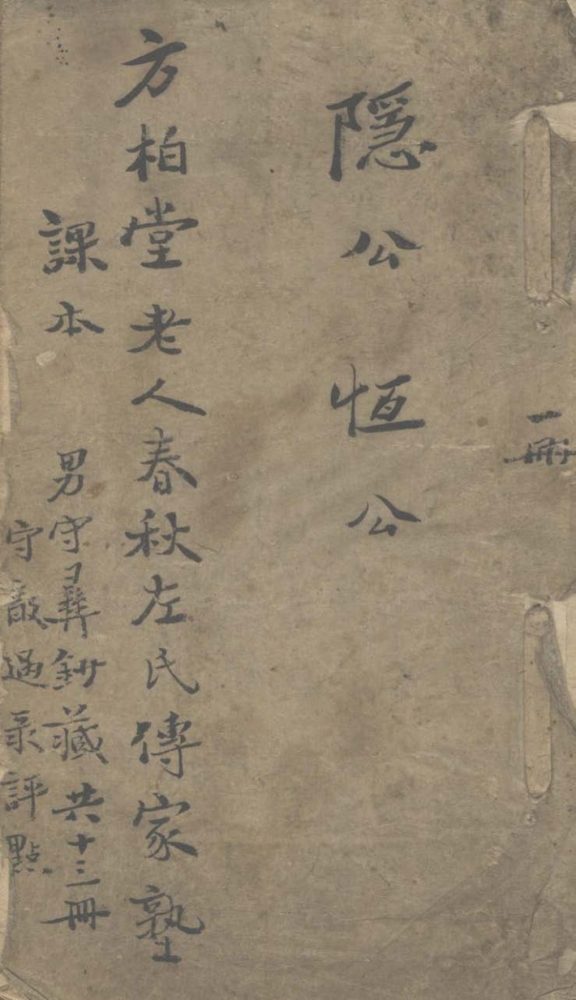 一冊
隱公 恆公
方柏堂老人春秋左氏傳家塾
課本
男守彝鈔藏共十三冊
守敦過录評點